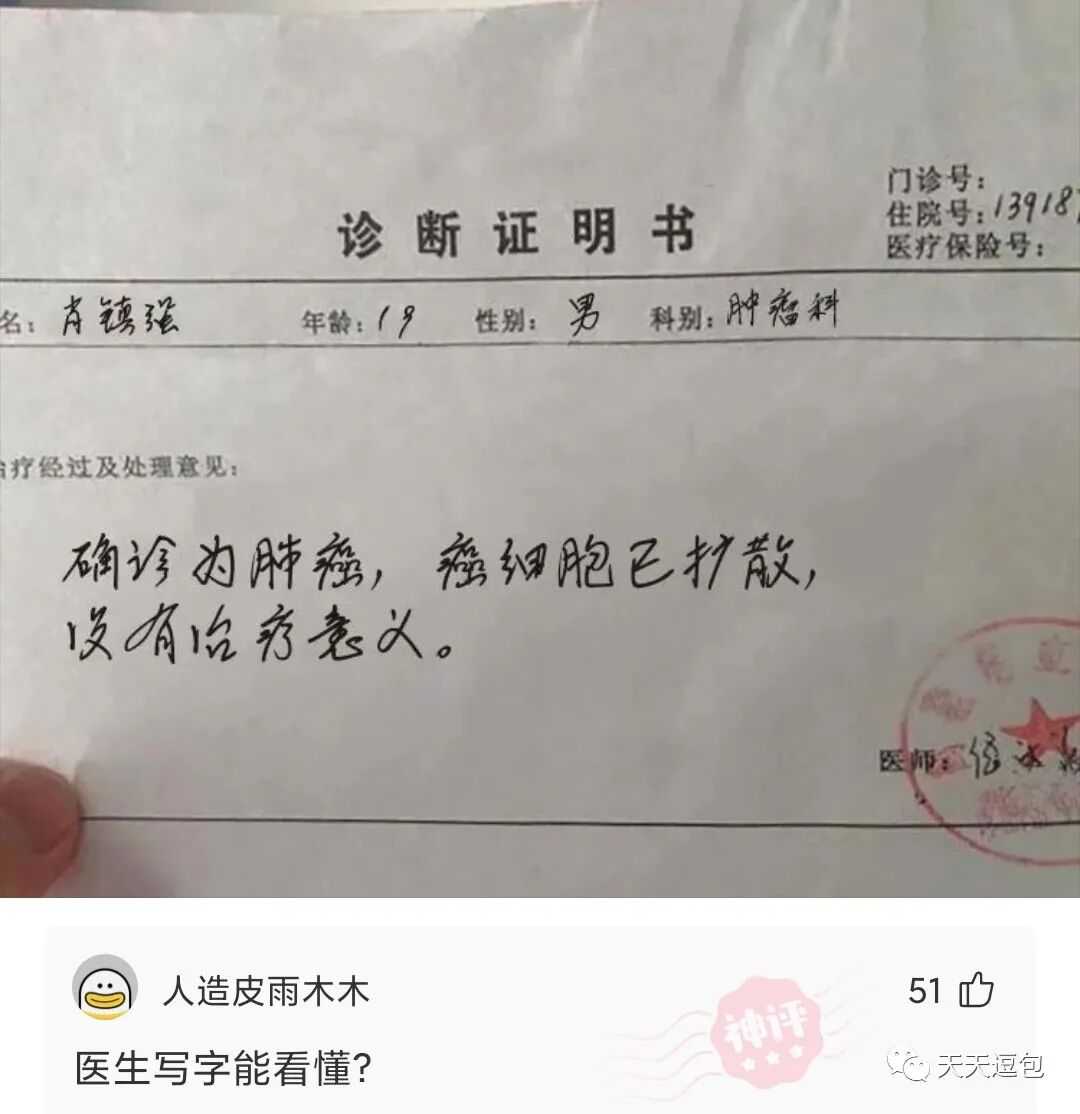 门诊号：
住院号：13918
医疗保险号：
诊断证明书
名：肖镇强 年龄：19 性别：男 科别：肿瘤科
治疗经过及处理意见：
确诊为肺癌，癌细胞已扩散，
没有治疗意义。
医师：
人造皮雨木木
51
神评
医生写字能看懂？
天天逗包